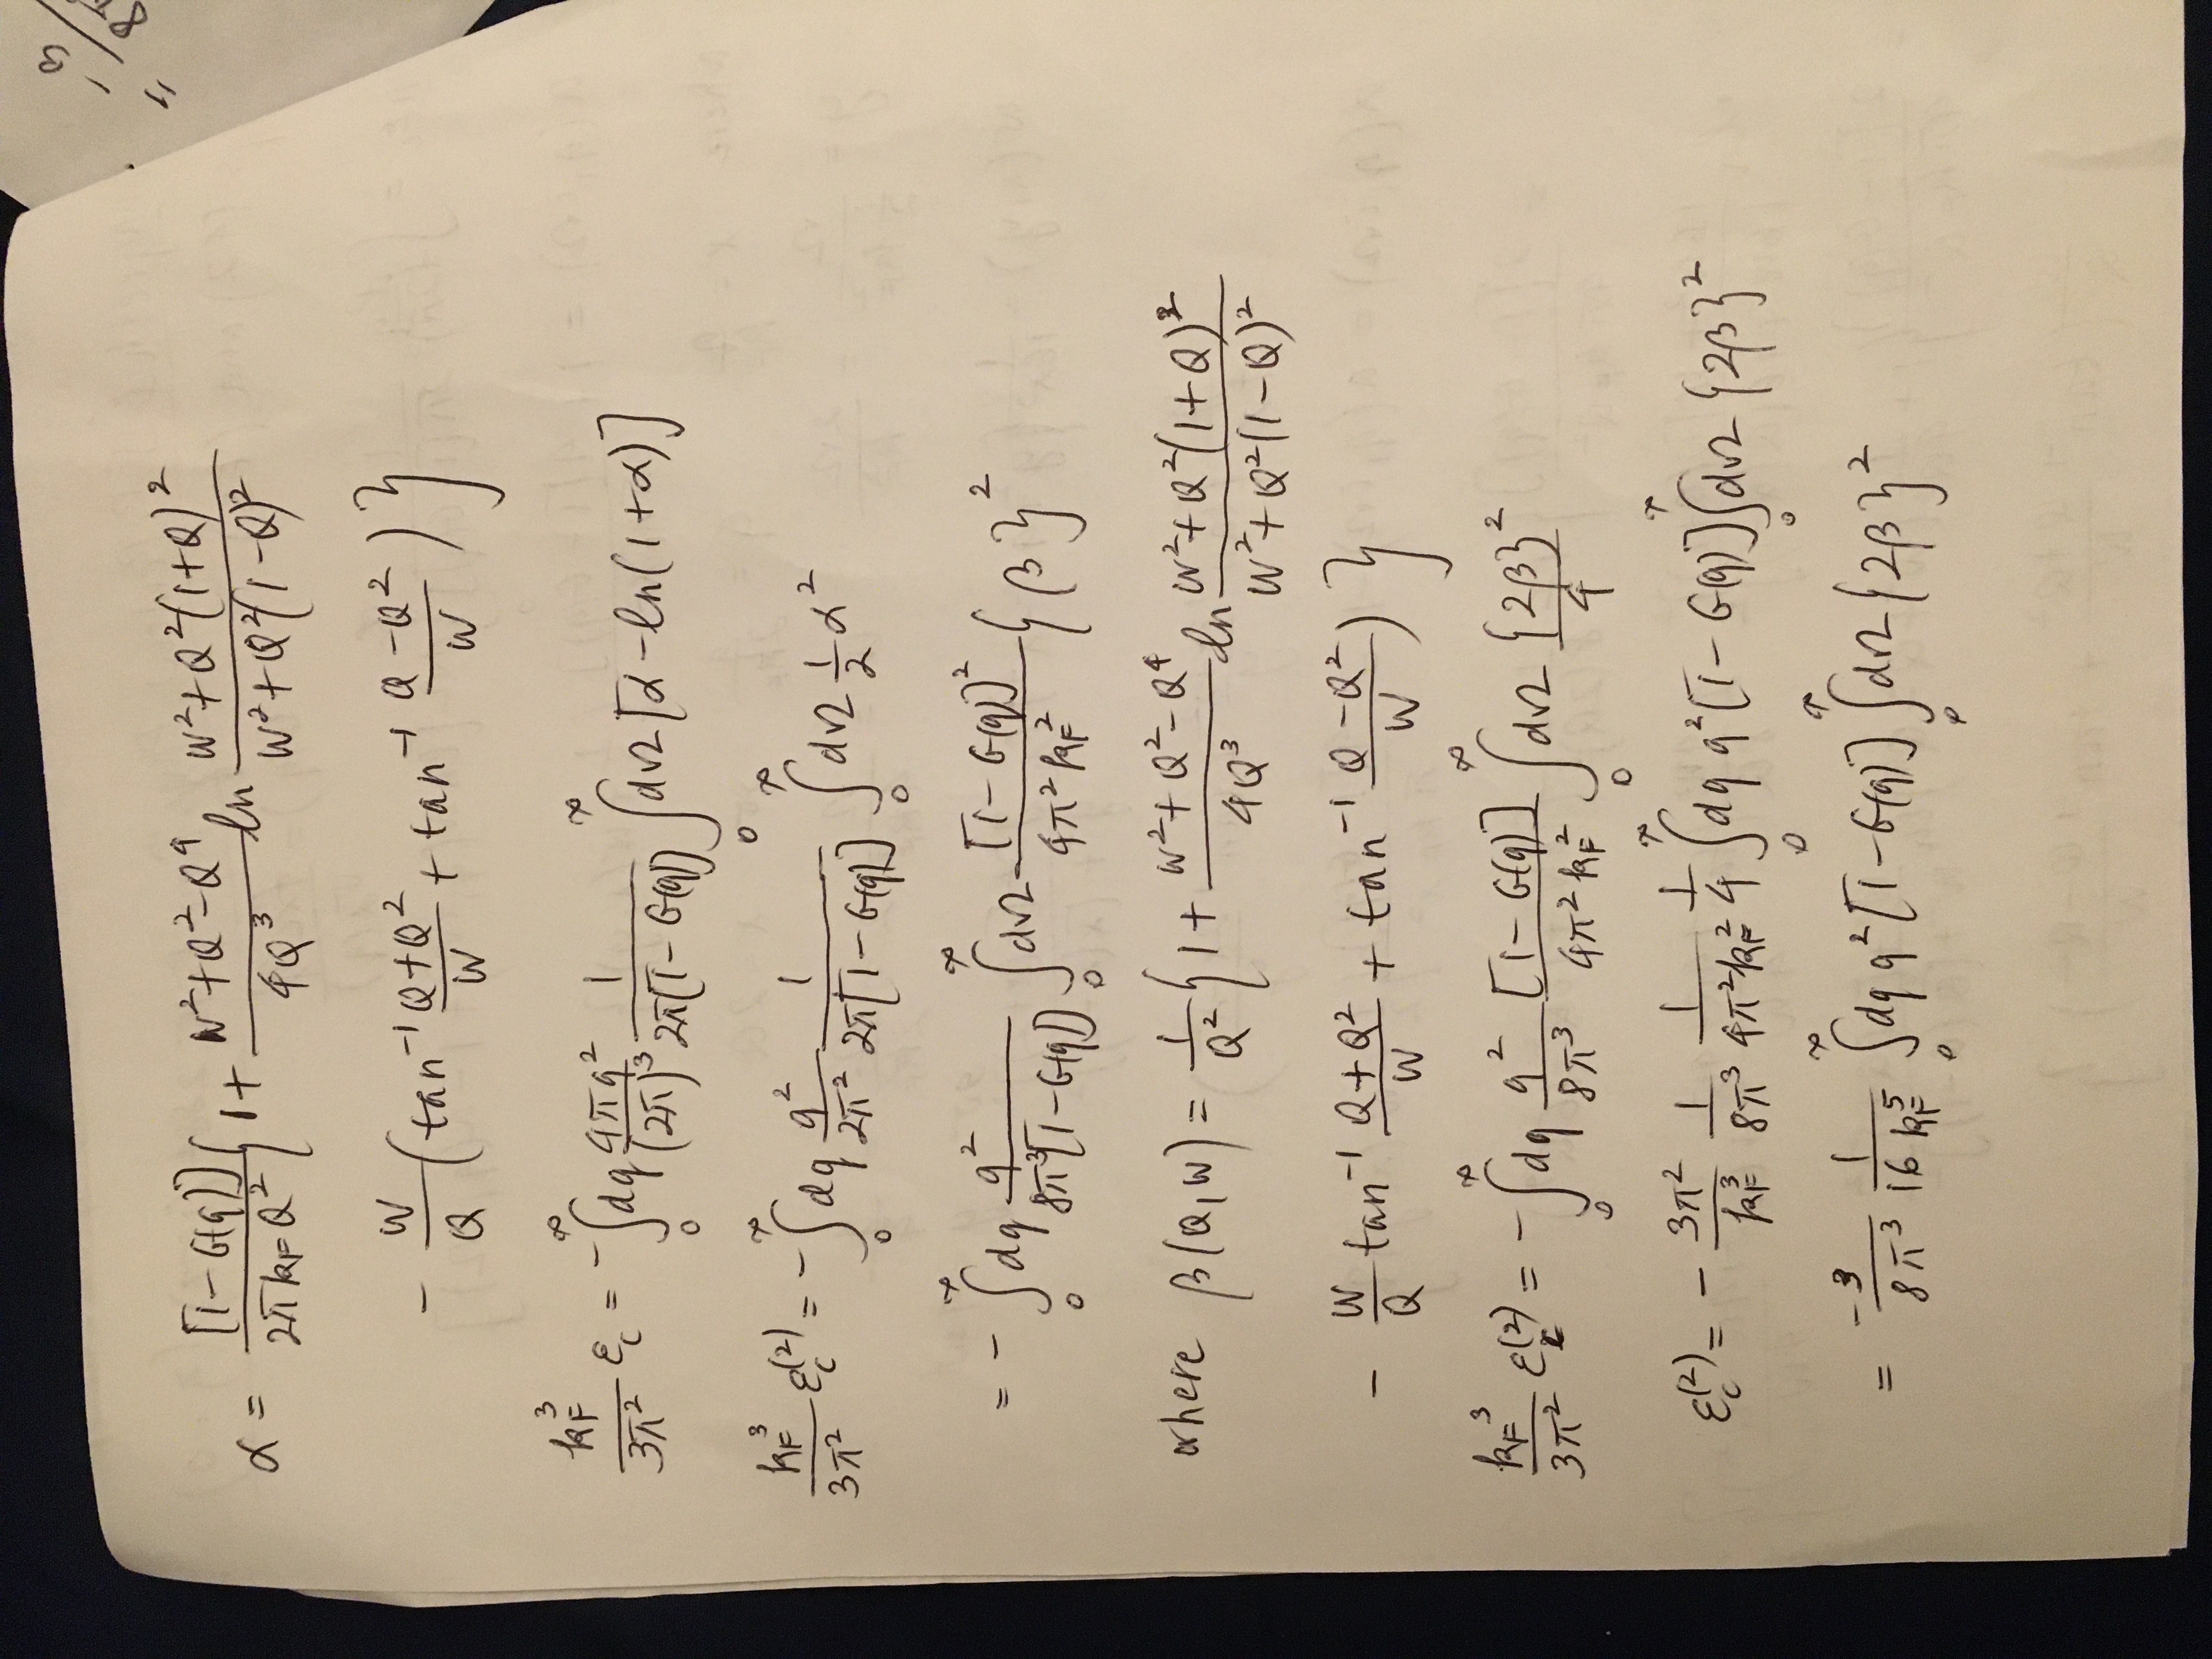 α = [1-G(q)]/(2π k_F Q²) { 1 + (W²+Q²-Q⁴)/(4Q³) ln (W²+Q²(1+Q)²)/(W²+Q²(1-Q)²)
- W/Q (tan⁻¹ (Q+Q²)/W + tan⁻¹ (Q-Q²)/W ) }
k_F³/(3π²) ε_c = -∫₀^∞ dq 4πq²/(2π)³ 1/(2π[1-G(q)]) ∫₀^∞ dΩ [α - ln(1+α)]
k_F³/(3π²) ε_c⁽²⁾ = -∫₀^∞ dq q²/(2π²) 1/(2π[1-G(q)]) ∫₀^∞ dΩ 1/2 α²
= -∫₀^∞ dq q²/(8π³[1-G(q)]) ∫₀^∞ dΩ [1-G(q)]²/(4π² k_F²) { β }²
where β(Q,W) = 1/Q² { 1 + (W²+Q²-Q⁴)/(4Q³) ln (W²+Q²(1+Q)²)/(W²+Q²(1-Q)²)
- W/Q tan⁻¹ (Q+Q²)/W + tan⁻¹ (Q-Q²)/W ) }
k_F³/(3π²) ε_c⁽²⁾ = -∫₀^∞ dq q²/(8π³) [1-G(q)]/(4π² k_F²) ∫₀^∞ dΩ {2β}²/4
ε_c⁽²⁾ = - 3π²/k_F³ 1/(8π³) 1/(4π² k_F²) 1/4 ∫₀^∞ dq q² [1-G(q)] ∫₀^∞ dΩ {2β}²
= -3/(8π³) 1/(16 k_F⁵) ∫₀^∞ dq q² [1-G(q)] ∫₀^∞ dΩ {2β}²